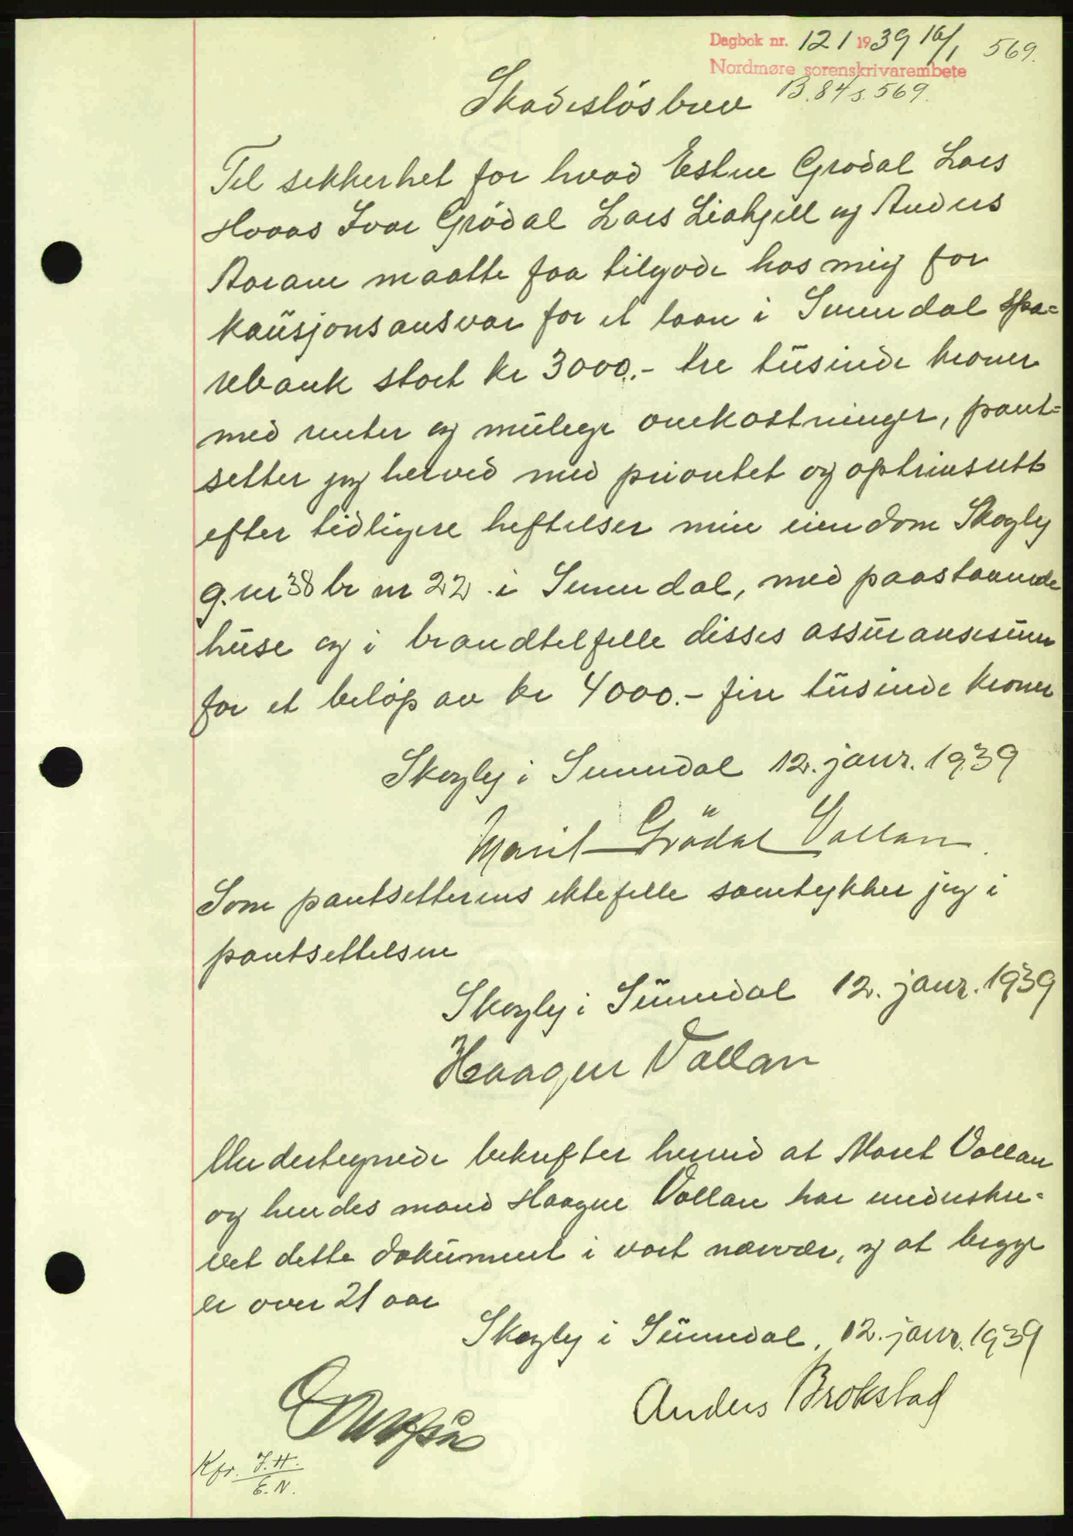 Dagbok nr. 121 1939 16/1 569.
Nordmøre sorenskrivarembete
B. 84 s. 569.
Skadesløsbrev
Til sekkerhet for hvad Grødal Lars
Hovas Ivar Grødal Lars Liahjell og Anders
maatte faa tilgode hos mig for
kausjonsansvar for et laan i Sunndal spa=
rebank stort kr 3000.- tre tusinde kroner
med renter og mulege omkostninger, pant=
setter jeg herved med prioritet og optrinsrett
efter tidligere heftelser min eiendom Skogly
g.nr 38 br nr 22 i Sunndal, med paastaaende
huse og i brandtilfelle disses assuransesum
for et beløp av kr 4000.- fire tusinde kroner
Skogly i Sunndal 12. janr. 1939
Marit Grödal Vollan.
Som pantsetterens ektefelle samtykker jeg i
pantsettelsen
Skogly i Sunndal 12. janr. 1939
Haagen Vollan
Undertegnede bekrefter herved at Marit Vollan
og hendes mand Haagen Vollan har underskre=
vet dette dokument i vort nærvær, og at begge
er over 21 aar
Skogly i Sunndal, 12. janr. 1939
Anders Brokstad
Kfr. J.H.
E.N.